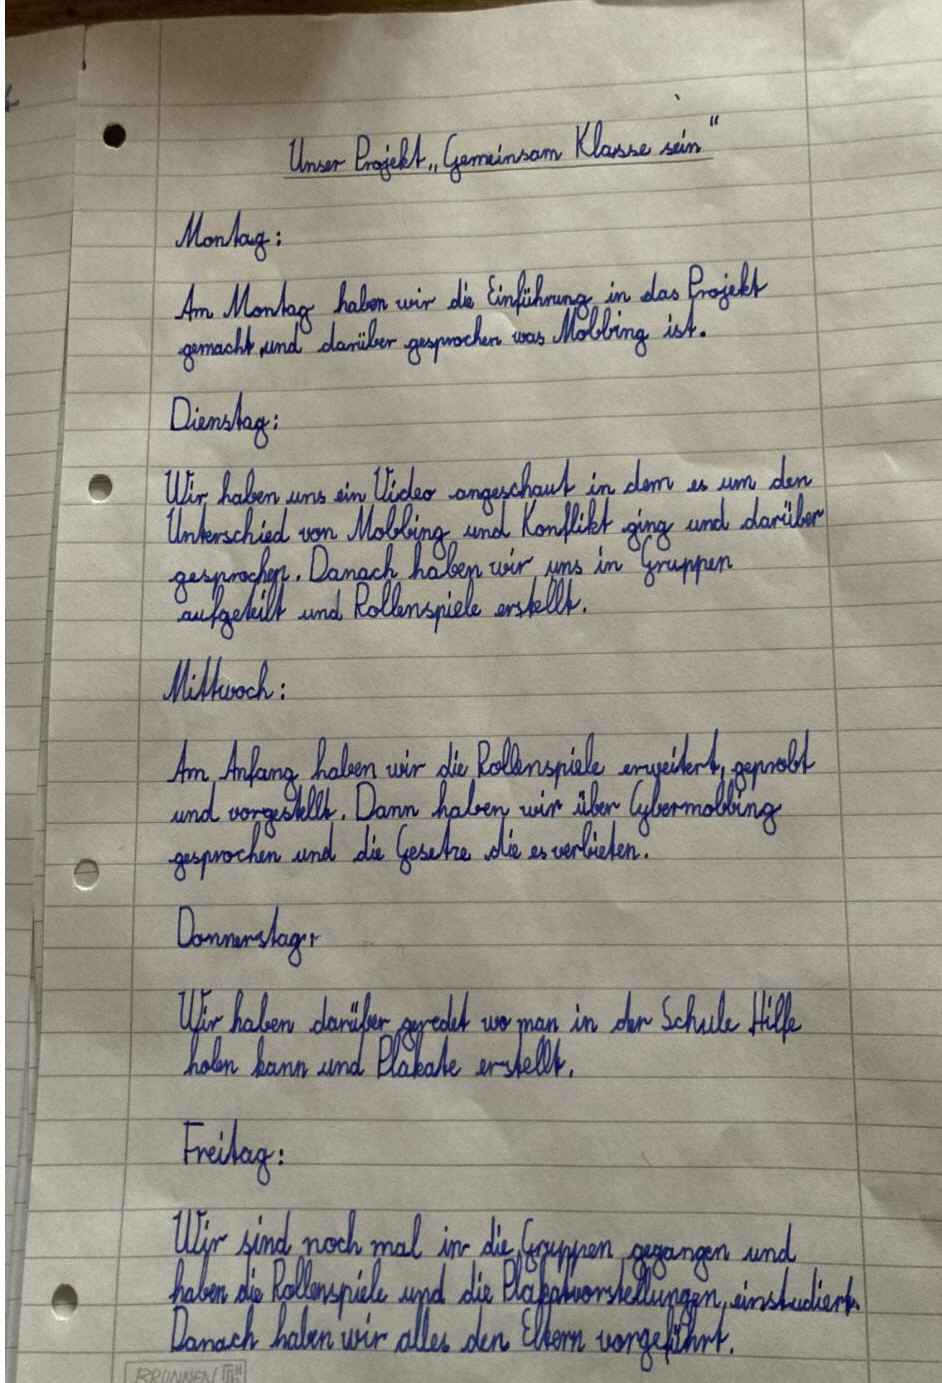 Unser Projekt „Gemeinsam Klasse sein"
Montag:
Am Montag haben wir die Einführung in das Projekt
gemacht und darüber gesprochen was Mobbing ist.
Dienstag:
Wir haben uns ein Video angeschaut in dem es um den
Unterschied von Mobbing und Konflikt ging und darüber
gesprochen. Danach haben wir uns in Gruppen
aufgeteilt und Rollenspiele erstellt.
Mittwoch:
Am Anfang haben wir die Rollenspiele erweitert, geprobt
und vorgestellt. Dann haben wir über Cybermobbing
gesprochen und die Gesetze die es verbieten.
Donnerstag:
Wir haben darüber geredet wo man in der Schule Hilfe
holen kann und Plakate erstellt.
Freitag:
Wir sind noch mal in die Gruppen gegangen und
haben die Rollenspiele und die Plakatvorstellungen einstudiert.
Danach haben wir alles den Eltern vorgeführt.
BRUNNEN